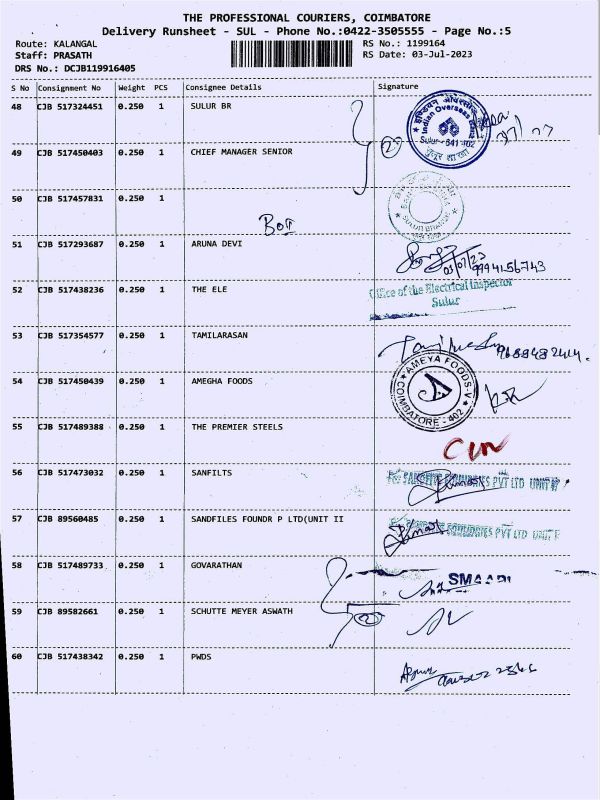 THE PROFESSIONAL COURIERS, COIMBATORE
Delivery Runsheet - SUL - Phone No.:0422-3505555 - Page No.:5
Route: KALANGAL RS No.: 1199164
Staff: PRASATH RS Date: 03-Jul-2023
DRS No.: DCJB119916405
S No Consignment No Weight PCS Consignee Details Signature
48 CJB 517324451 0.250 1 SULUR BR
इण्डियन ओवरसीज़ Indian Overseas Sulur - 641 402
49 CJB 517450403 0.250 1 CHIEF MANAGER SENIOR
50 CJB 517457831 0.250 1
BOI SULUR BRANCH
51 CJB 517293687 0.250 1 ARUNA DEVI
03/07/23 9994156743
52 CJB 517438236 0.250 1 THE ELE
Office of the Electrical Inspector
Sulur
53 CJB 517354577 0.250 1 TAMILARASAN
54 CJB 517450439 0.250 1 AMEGHA FOODS
AMEYA FOODS-V COIMBATORE - 402
55 CJB 517489388 0.250 1 THE PREMIER STEELS
56 CJB 517473032 0.250 1 SANFILTS
PVT LTD UNIT
57 CJB 89560485 0.250 1 SANDFILES FOUNDR P LTD(UNIT II
PVT LTD UNIT
58 CJB 517489733 0.250 1 GOVARATHAN
59 CJB 89582661 0.250 1 SCHUTTE MEYER ASWATH
2
60 CJB 517438342 0.250 1 PWDS